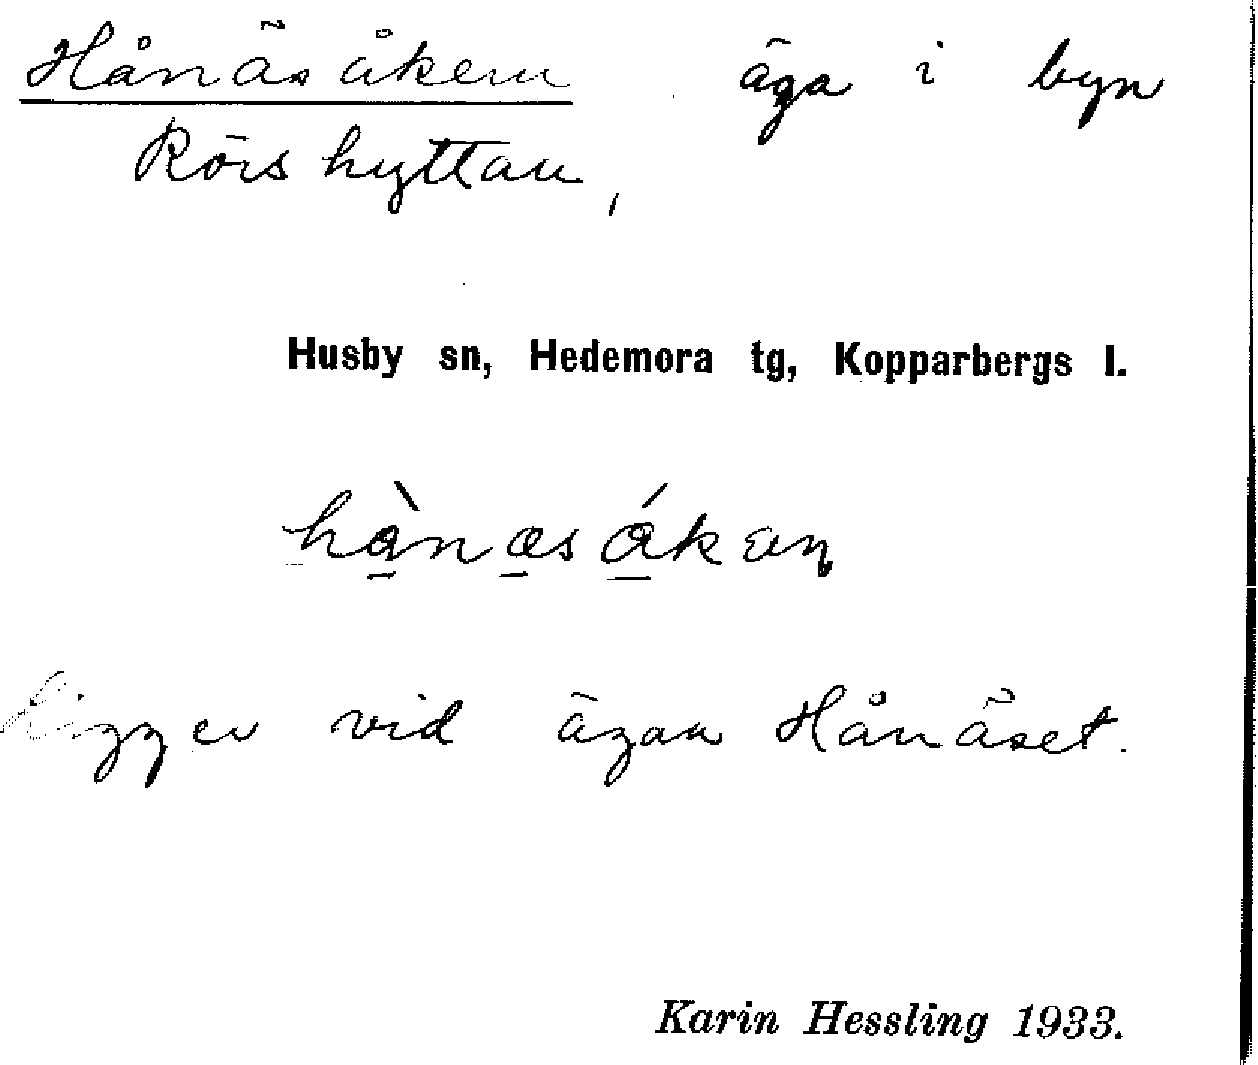 Hånäsåkern äga i byn
Rörshyttan,
Husby sn, Hedemora tg, Kopparbergs l.
Ligger vid ägan Hånäset.
Karin Hessling 1933.